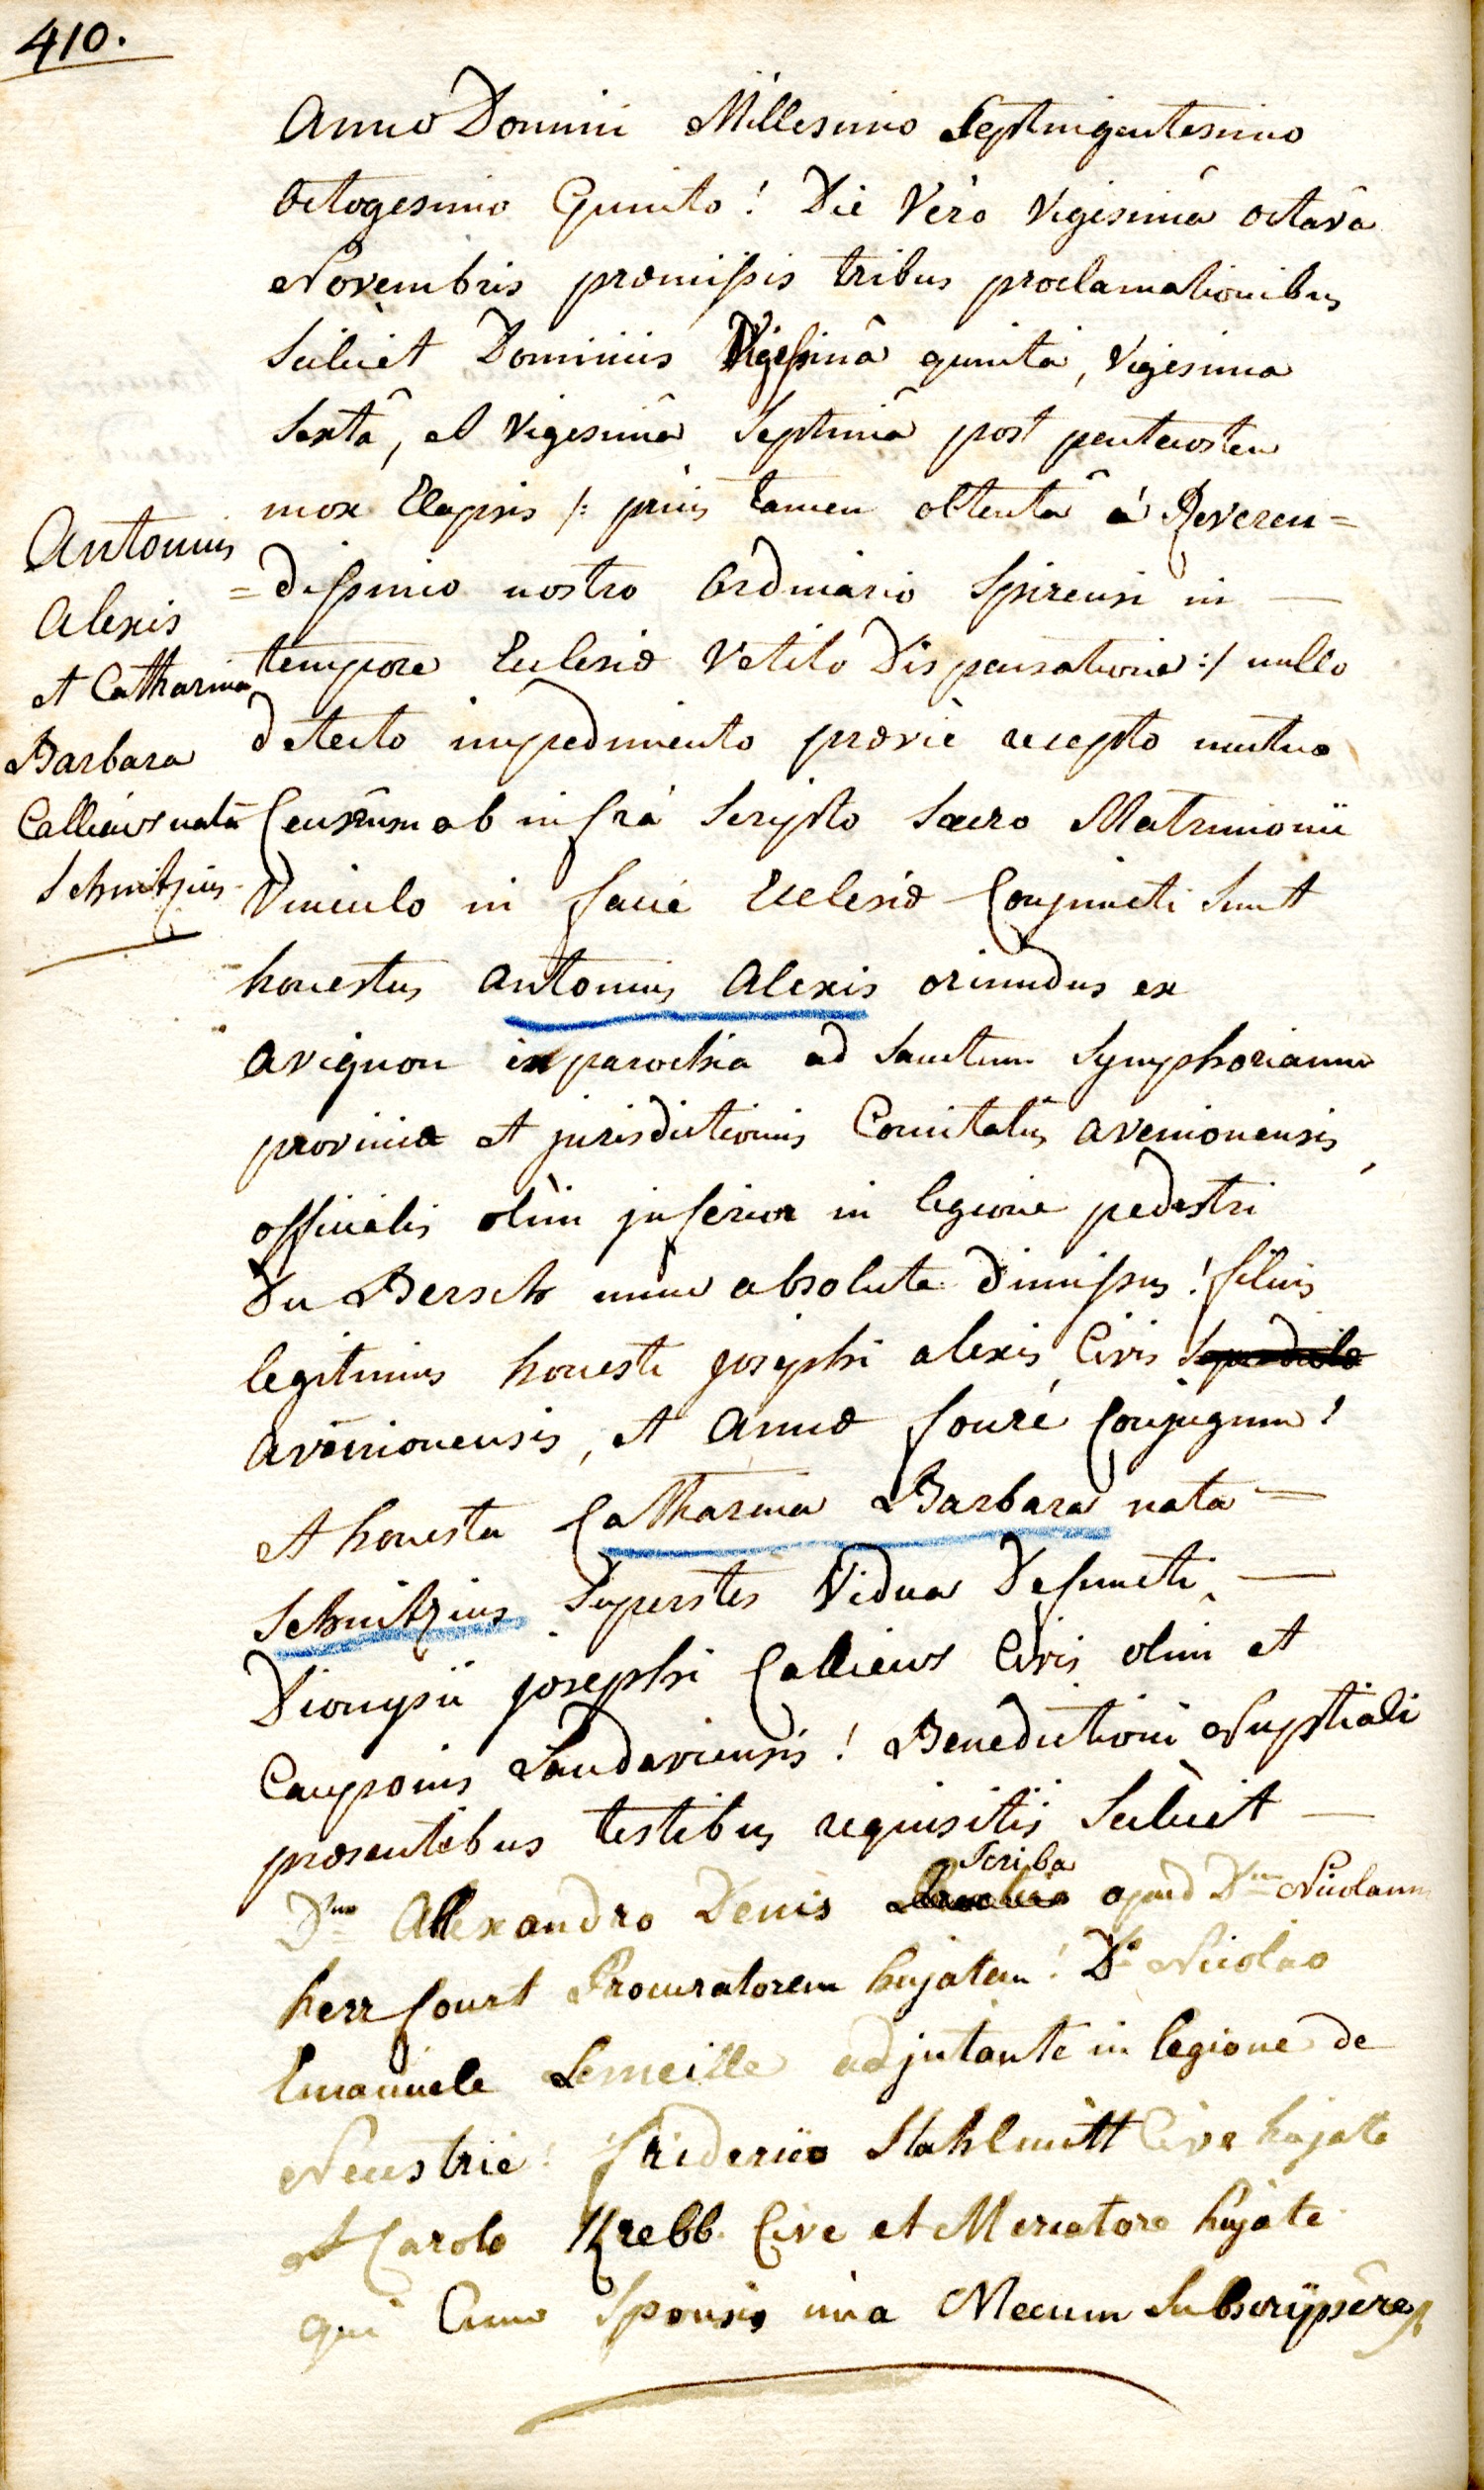 410.
Anno Domini Millesimo Septingentesimo
octogesimo Quinto! Die Verò Vigesimâ octavâ
Novembris præmissis tribus proclamationibus
Scilicet Dominiis Vigessimâ quinta, Vigesima
Sextâ, et Vigesimâ Septimâ post pentecosten
mox Elapsis /: priùs tamen obtentâ à Reveren=
=dissimo nostro Ordinario Spirensi in —
tempore Eclesiæ Vetito Dispensatione :/ nullo
detecto impedimento præviè recepto mutuo
Consensu ab infrà Scripto Sacro Matrimonii
Vinculo in facie Eclesiæ Conjuncti Sunt
honestus Antonius Alexis oriundus ex
Avignon ex parochia ad Sanctum Symphorianum
provinciæ et jurisdictionis Comitatûs Avenionensis,
officialis olìm inferior in legione pedestri
Du Bersch nunc absolute dimissus! filius
legitimus honesti josephi alexis Civis
Avenionensis, et Annæ fouré Conjugum!
Et honesta Catharina Barbara nata —
Schnitzius Superstes Vidua Defuncti —
Dionysii josephi Callieux Civis olim et
Cauponis Landaviensis! Benedictioni Nuptiali
præsentibus testibus requisitis Scilicet —
Dno Allexandro Denis Scriba apud Dnum Nicolaum
herrfourt Procuratorem hujatem! Do Nicolao
Emanuele Lemeille adjutante in legione de
Neustrie! friderico Stahlmitt Cive hujate
et Carolo Krebb. Cive et Mercatore hujate
qui Cum Sponsis unà Mecum Subscrÿpsère
Antonius
Alexis
et Catharina
Barbara
Callieux nata
Schnitzius